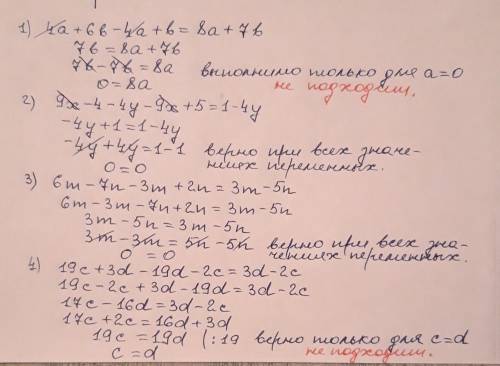 1) 4a + 6b - 4a + b = 8a + 7b
7b = 8a + 7b
7b - 7b = 8a выполнимо только для a=0
0 = 8a не подходит.
2) 9x - 4 - 4y - 9x + 5 = 1 - 4y
-4y + 1 = 1 - 4y
-4y + 4y = 1 - 1 верно при всех значе-
0 = 0 ниях переменных.
3) 6m - 7n - 3m + 2n = 3m - 5n
6m - 3m - 7n + 2n = 3m - 5n
3m - 5n = 3m - 5n
3m - 3m = 5n - 5n верно при всех зна-
0 = 0 чениях переменных.
4) 19c + 3d - 19d - 2c = 3d - 2c
19c - 2c + 3d - 19d = 3d - 2c
17c - 16d = 3d - 2c
17c + 2c = 16d + 3d
19c = 19d |:19 верно только для c=d
c = d не подходит.